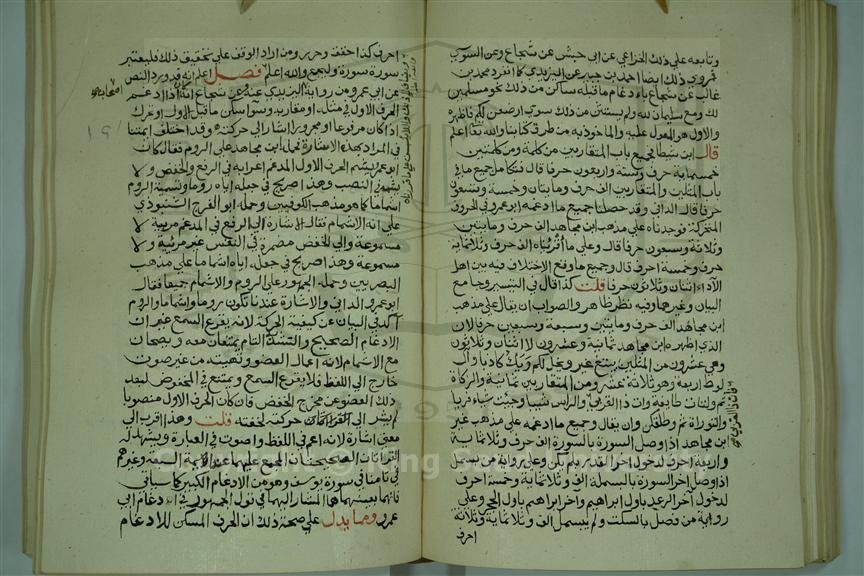 وتابعه على ذلك الخزاعي عن ابي حبش عن شجاع وعن السوسي
فروى ذلك ايضا احمد بن جبير عن اليزيدي كما انفرد محمد بن
غالب عن شجاع باد غام ما قبله ساكن من ذلك نحو مسلمين
لك ومع سليمان لله ولم يستثن من ذلك سوى ارضعن لكم فاظهره
والاول هو المعول عليه والماخوذ به من طرق كتابنا والله تعالى اعلم
قال ابن شيطا فجميع باب المتقاربين من كلمة ومن كلمتين
خمسماية حرف وستة واربعون حرفا قال فتكامل جميع ما في
باب المثلين والمتقاربين الف حرف ومايتان وخمسة وتسعون
حرفا قال الداني وقد حصلنا جميع ما ادغمه ابو عمرو في الحروف
المتحركة فوجدناه على مذهب ابن مجاهد الف حرف ومايتين
وثلاثة وسبعون حرفا قال وعلى ما اقرئناه الف حرف وثلاثماية
حرف وخمسة احرف قال وجميع ما وقع الاختلاف فيه بين اهل
الاداء اثنان وثلاثون حرفا قلت كذا قال في التيسير وجامع
البيان وغيرهما وفيه نظر ظاهر والصواب ان يقال على مذهب
ابن مجاهد الف حرف ومايتين وسبعة وسبعين حرفا لان
الذي اظهره ابن مجاهد ثمانية وعشرون لا اثنان وثلاثون
وهي عشرون من المثلين يبتغ غير ويخل لكم ويك كاذبا وآل
لوط اربعة وهو ثلاثة عشر ومن المتقاربين ثمانية والزكاة
ثم ولتات طايفة وآت ذا القربى والراس شيبا وجيت شيا فريا
والتوراة ثم وطلقكن وان يقال وجميع ما ادغمه على مذهب غير
ابن مجاهد اذا وصل السورة بالسورة الف حرف وثلاثماية
واربعة احرف لدخول آخر القدر بلم يكن وعلى رواية من بسمل
اذا وصل اخر السورة بالبسملة الف وثلاثماية وخمسة احرف
لدخول آخر الرعد باول ابراهيم وآخر ابراهيم باول الحجر وعلى
رواية من فصل بالسكت ولم يبسمل الف وثلاثماية وثلاثة
احرف
احرف كذا حقق وحرر ومن اراد الوقف على تحقيق ذلك فليعتبر
سورة سورة وليجمع والله اعلم فصل اعلم انه قد ورد النص
عن ابي عمرو من رواية اليزيدي عنه وعن شجاع انه كان اذا ادغم
الحرف الاول في مثله او مقاربه وسوا سكن ما قبل الاول او تحرك
اذا كان مرفوعا او مجرورا اشار الى حركته وقد اختلف ايمتنا
في المراد بهذه الاشارة فحمله ابن مجاهد على الروم فقال كان
ابو عمرو يشم الحرف الاول المدغم اعرابه في الرفع والخفض ولا
يشم في النصب وهذا صريح في جعله اياه روما وتسمية الروم
اشماما كما هو مذهب الكوفيين وحمله ابو الفرج الشنبوذي
على انه الاشمام فقال الاشارة الى الرفع في المدغم مرئية لا
مسموعة والى الخفض مضمرة في النفس غير مرئية ولا
مسموعة وهذا صريح في جعله اياه اشماما على مذهب
البصريين وحمله الجمهور على الروم والاشمام جميعا فقال
ابو عمرو الداني والاشارة عندنا تكون روما واشماما والروم
آكد في البيان عن كيفية الحركة لانه يقرع السمع غير ان
الادغام الصحيح والتشديد التام يمتنعان معه ويصحان
مع الاشمام لانه اعمال العضو وتهيئته من غير صوت
خارج الى اللفظ فلا يقرع السمع ويمتنع في المخفوض لبعد
ذلك العضو من مخرج الخفض فان كان الحرف الاول منصوبا
لم يشر الى حركته لخفته قلت وهذا اقرب الى
معنى الاشارة لانه اعم في اللفظ واصوب في العبارة ويشهد له
القراءتان الصحيحتان المجمع عليهما عن الايمة السبعة وغيرهم
في تامنا في سورة يوسف وهو من الادغام الكبير كما سياتي
فانهما بعينهما هما المشار اليهما في قول الجمهور في ادغام ابي
عمرو ومما يدل على صحة ذلك ان الحرف المسكن للادغام
Copyright © King Saud University